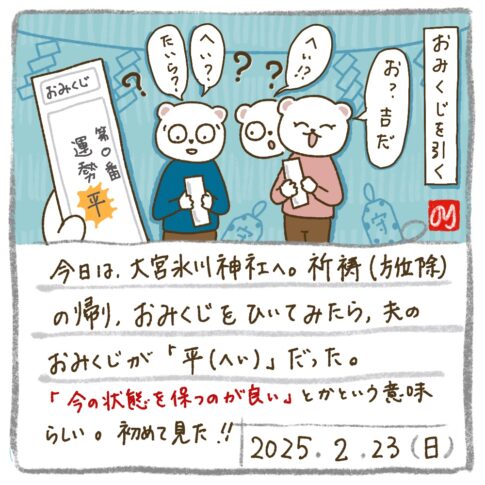 おみくじを引く
お？吉だ
へい！？
へい？
たいら？
？
？
？
？
おみくじ
第〇番
運勢
平
守
今日は、大宮氷川神社へ。祈祷(方位除)
の帰り、おみくじをひいてみたら、夫の
おみくじが「平(へい)」だった。
「今の状態を保つのが良い」とかという意味
らしい。初めて見た!!
2025.2.23(日)